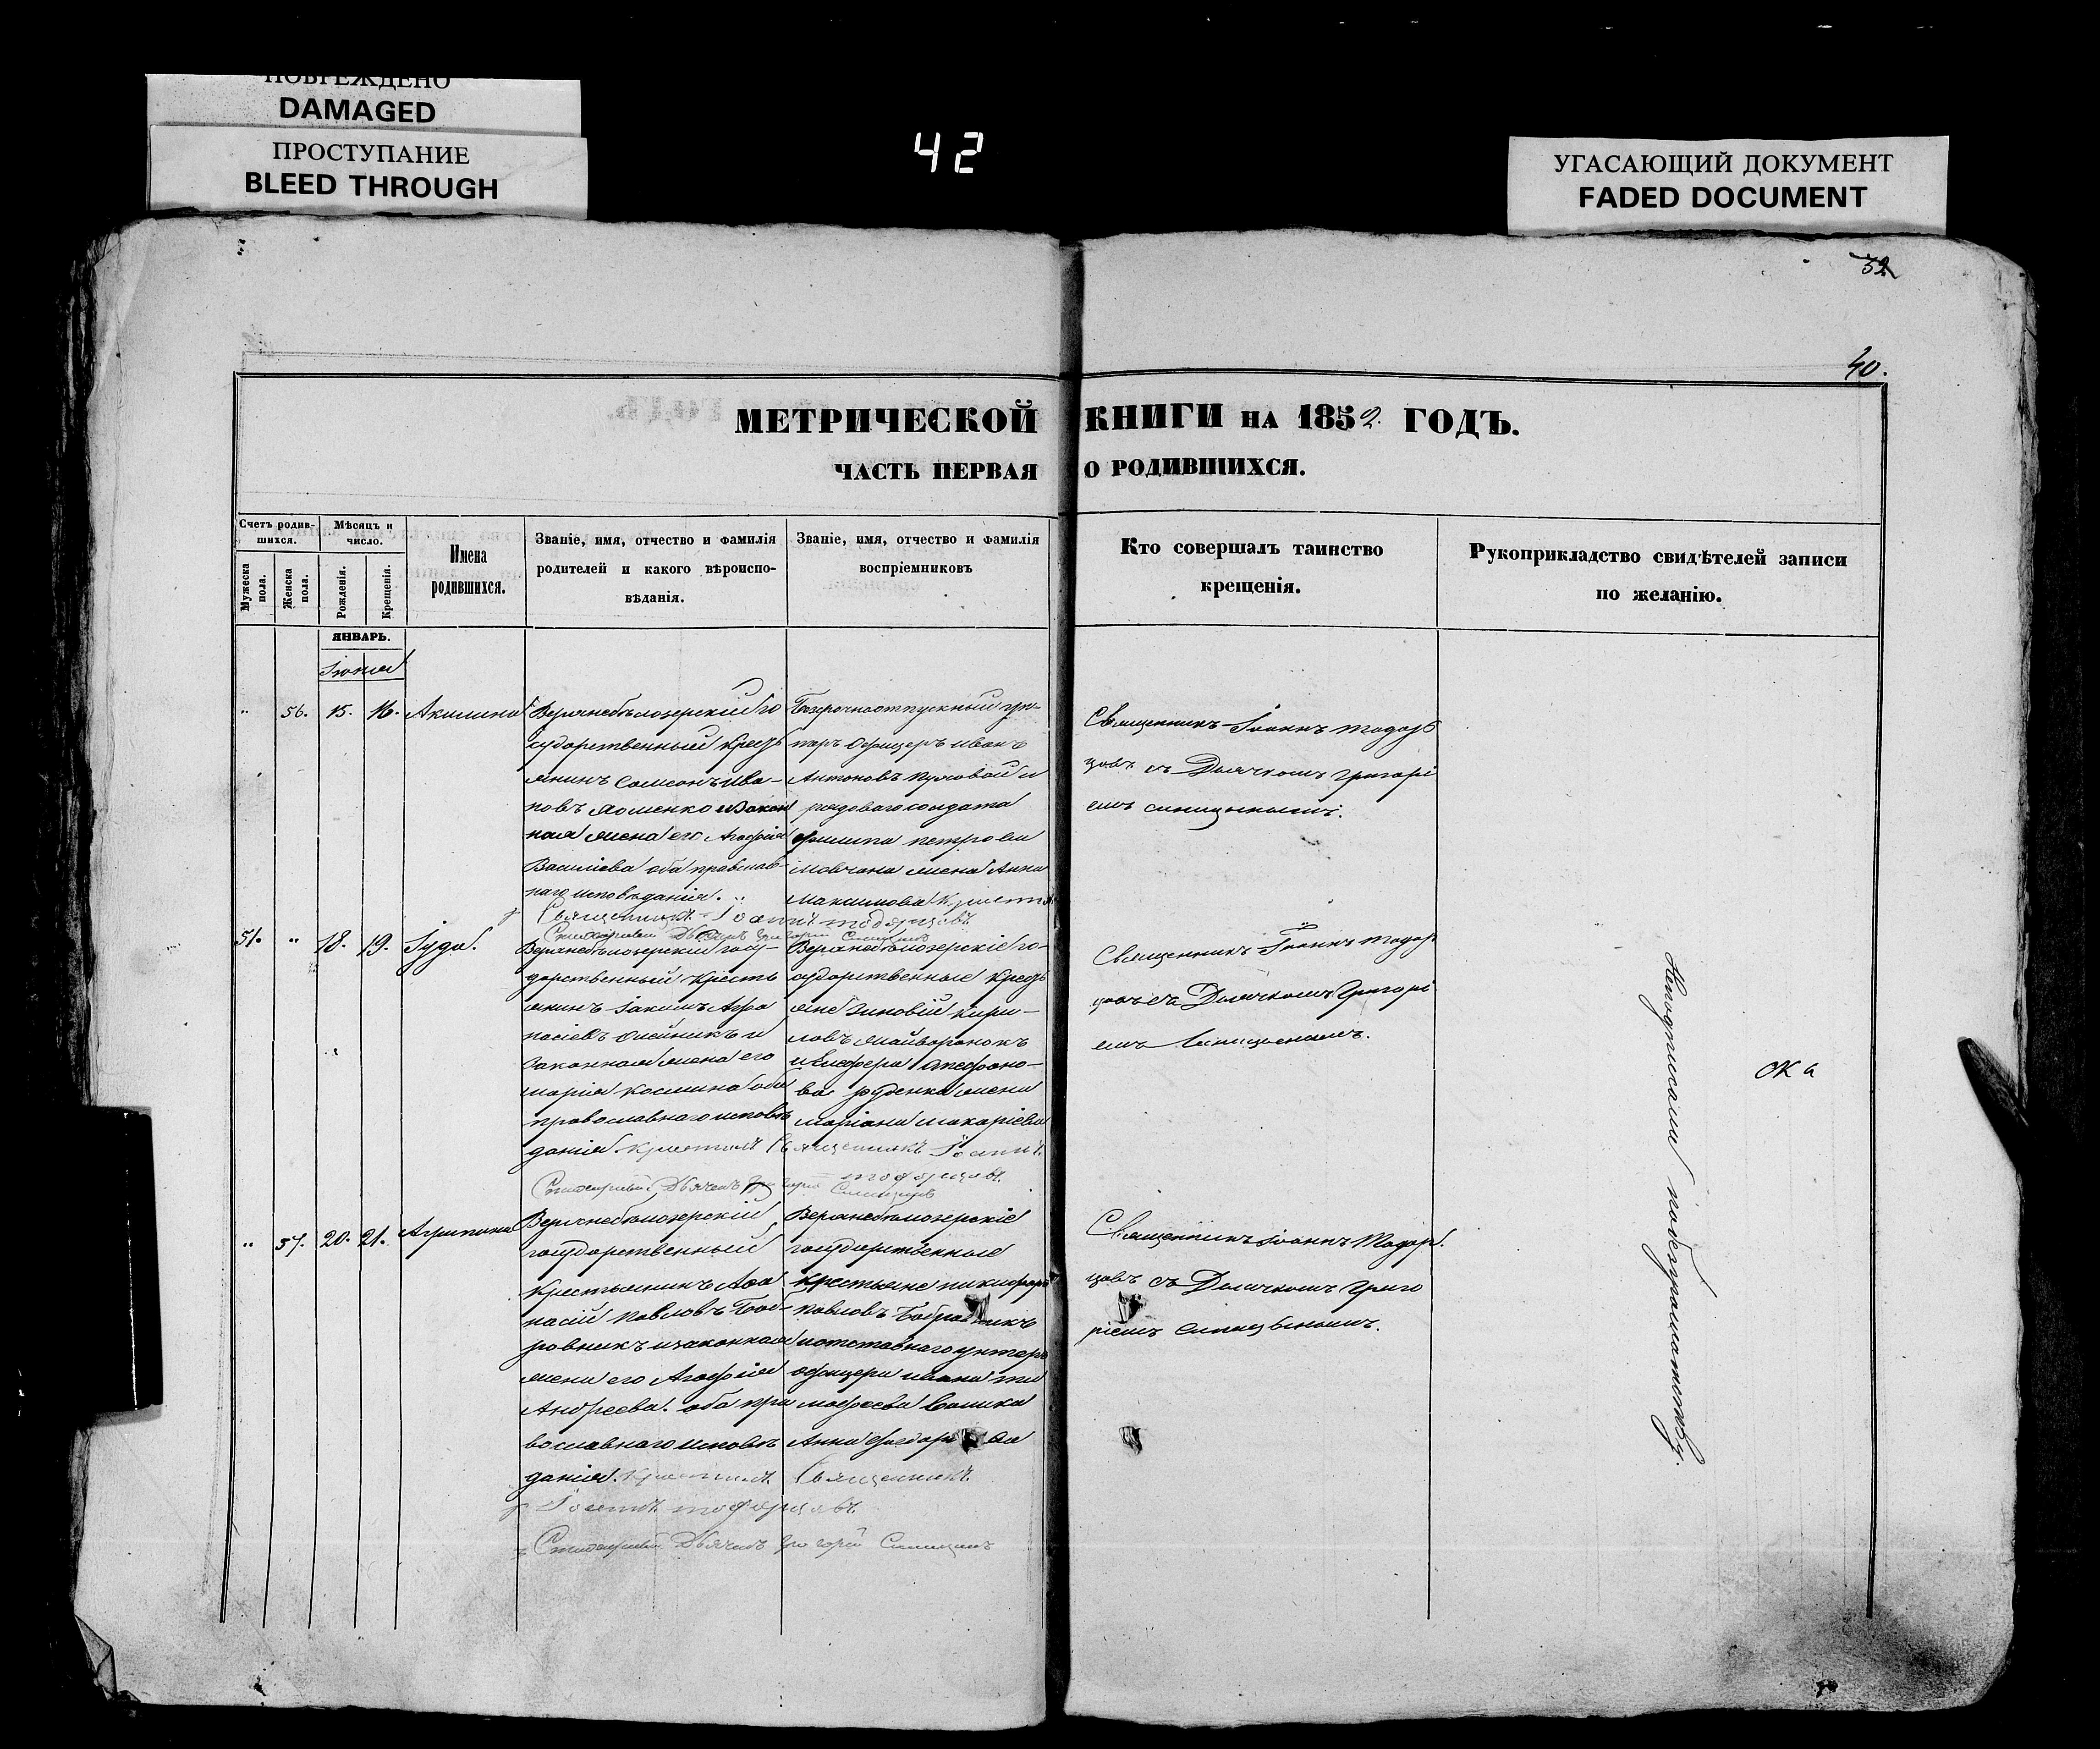 ПОВРЕЖДЕНО
DAMAGED
ПРОСТУПАНИЕ
BLEED THROUGH
42
УГАСАЮЩИЙ ДОКУМЕНТ
FADED DOCUMENT
40.
МЕТРИЧЕСКОЙ КНИГИ НА 1852. ГОДЪ.
ЧАСТЬ ПЕРВАЯ О РОДИВШИХСЯ.
Счетъ родив-
шихся.
Мужеска пола.
Женска пола.
Мѣсяцъ и
число.
Рожденія.
Крещенія.
Имена
родившихся.
Званіе, имя, отчество и фамилія
родителей и какого вѣроиспо-
вѣданія.
Званіе, имя, отчество и фамилія
воспріемниковъ
Кто совершалъ таинство
крещенія.
Рукоприкладство свидѣтелей записи
по желанію.
ЯНВАРЬ.
Іюня
" 56. 15. 16. Акилина
Верхнебѣлозерскій го
сударственный Кресть
янинъ Самсонъ Ива-
новъ и Закон
ная жена его Агафія
Василіева оба православ
наго исповѣданія.
Безсрочноотпускный ун-
теръ Офицеръ Иванъ
Антоновъ и
рядоваго солдата
Филипа Петрова
Мовчана жена Анна
Максимова
Священникъ Іоаннъ Тодор
цовъ съ Дьячкомъ Григорі
емъ Синицынымъ.
Священникъ Іоаннъ Тодорцовъ
Дьячекъ Григорій Синицынъ
51. " 18. 19. Іуда.
Верхнебѣлозерскій госу-
дарственный Кресть
янинъ Іакимъ Афа
насіевъ Олейникъ и
Законная жена его
Марія Космина оба
православнаго исповѣ
данія. Крестилъ Священникъ Іоаннъ
Тодорцовъ.
Верхнебѣлозерскіе го-
сударственные Кресть
яне Зиновій Кири-
ловъ Майворонокъ
и
ва Руденка жена
Маріана Макаріева
Дьячекъ Григорій Синицынъ
Священникъ Іоаннъ Тодор
цовъ съ Дьячкомъ Григорі
емъ Синицынымъ.
" 57. 20. 21. Агрипина
Верхнебѣлозерскій
государственный
Крестьянинъ Афа
насій Павловъ Боб-
ровникъ и законная
жена его Агафія
Андреева. оба пра
вославнаго исповѣ
данія. Крестилъ Священникъ
Іоаннъ Тодорцовъ.
Верхнебѣлозерскіе
государственные
крестьяне Никифоръ
Павловъ Бобровникъ
и отставнаго унтеръ
офицера Ивана Ти
мофеева
Анна
Дьячекъ Григорій Синицынъ
Священникъ Іоаннъ Тодор.
цовъ съ Дьячкомъ Григо
ріемъ Синицынымъ.
по безграмотству.